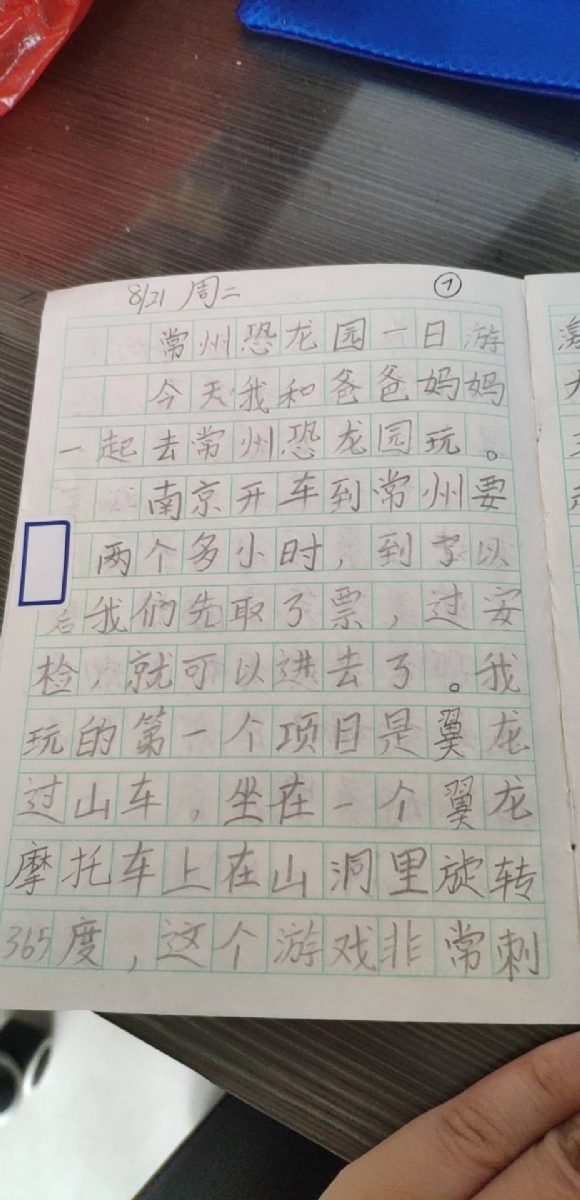 8/21 周二 ①
常州恐龙园一日游
今天我和爸爸妈妈
一起去常州恐龙园玩。
南京开车到常州要
两个多小时，到了以
后我们先取了票，过安
检，就可以进去了。我
玩的第一个项目是翼龙
过山车。坐在一个翼龙
摩托车上在山洞里旋转
365度，这个游戏非常刺